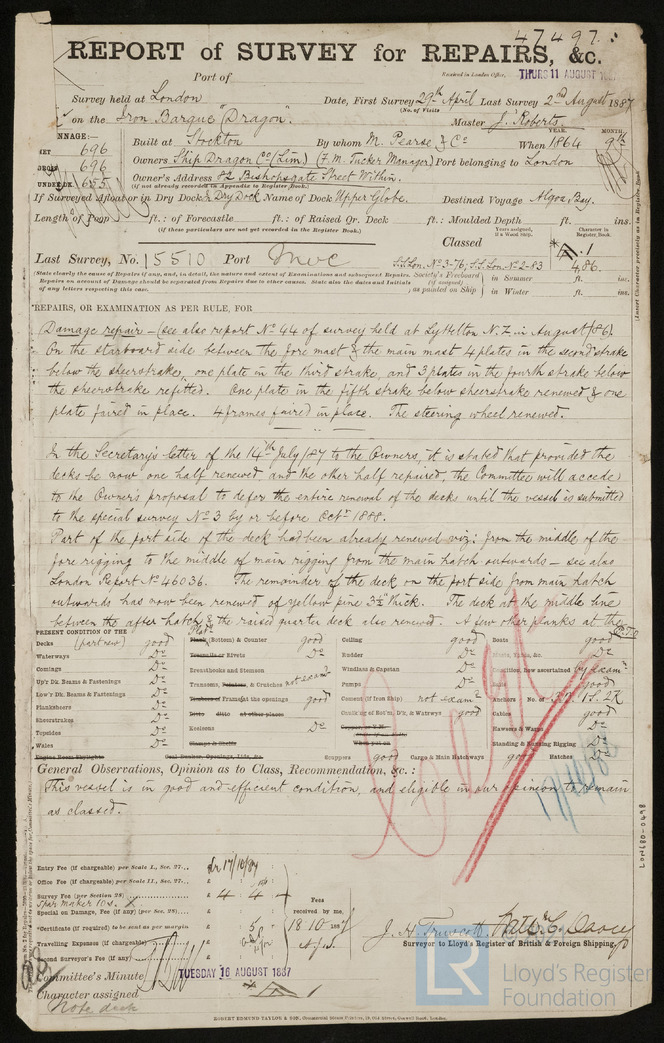 47497.
REPORT of SURVEY for REPAIRS, &c.
Port of
Received in London Office, THURS 11 AUGUST 188
Survey held at London Date, First Survey 29th April Last Survey 2nd August 1887
(No. of Visits
on the Iron Barque "Dragon". Master J. Roberts
NNAGE:—
NET 696
GROSS 696
UNDER DK 655
Built at Stockton By whom M. Pearse & Co When 1864 YEAR. MONTH. 9th
Owners Ship Dragon Co (Lim) (F. M. Tucker Manager) Port belonging to London
Owner's Address 82 Bishopsgate Street Within.
(if not already recorded in Appendix to Register Book.)
If Surveyed Afloat or in Dry Dock Dry Dock Name of Dock Upper Globe. Destined Voyage Algoa Bay.
Length of Poop ft.: of Forecastle ft.: of Raised Qr. Deck ft.: Moulded Depth ft. ins.
(if these particulars are not yet recorded in the Register Book.)
Years assigned, if a Wood Ship. Character in Register Book.
Classed
Last Survey, No. 15510 Port S.S. Lon. No. 3-76, S.S. Lon. No. 2-83 4,86.
(State clearly the cause of Repairs if any, and, in detail, the nature and extent of Examinations and subsequent Repairs.
Repairs on account of Damage should be separated from Repairs due to other causes. State also the dates and Initials
of any letters respecting this case.
Society's Freeboard (if assigned) as painted on Ship in Summer ft. ins.
in Winter ft. ins.
(Insert Character precisely as in Register Book.)
REPAIRS, OR EXAMINATION AS PER RULE, FOR
Damage repair — (see also report No 44 of survey held at Lyttelton N.Z. in August /86).
On the starboard side between the fore mast & the main mast 4 plates in the second strake
below the sheerstrake, one plate in the third strake, and 3 plates in the fourth strake below
the sheerstrake refitted. One plate in the fifth strake below sheerstrake renewed & one
plate faired in place. 4 frames faired in place. The steering wheel renewed.
In the Secretary's letter of the 14th July/87 to the Owners, it is stated that provided the
decks be now one half renewed, and the other half repaired, the Committee will accede
to the Owners proposal to defer the entire renewal of the decks until the vessel is submitted
to the special survey No 3 by or before Octr 1888.
Part of the port side of the deck had been already renewed viz: from the middle of the
fore rigging to the middle of main rigging from the main hatch outwards — see also
London Report No 46036. The remainder of the deck on the port side from main hatch
outwards has now been renewed of yellow pine 3½" thick. The deck at the middle line
between the after hatch & the raised quarter deck also renewed. A few other planks at the
P.T.O
PRESENT CONDITION OF THE
Decks (part new) good
Waterways Do
Comings Do
Up'r Dk. Beams & Fastenings Do
Low'r Dk. Beams & Fastenings Do
Planksheers Do
Sheerstrakes Do
Topsides Do
Wales Do
Engine Room Skylights
Plat (Bottom) & Counter good
Treenails or Rivets Do
Breasthooks and Stemson
Transoms, Pointers, & Crutches not examd
Timbers of Frames at the openings good
Ditto ditto at other places
Keelsons Do
Clamps & Shelfs
Coal Bunker, Openings, Lids, &c.
Ceiling good
Rudder Do
Windlass & Capstan Do
Pumps Do
Cement (if Iron Ship) not examd
Caulking of Bot'm, D'k, & Watrwys good
Scuppers good Cargo & Main Hatchways good Hatches Do
Boats good
Masts, Yards, &c. Do
Condition, how ascertained by exam
Sails good
Anchors No. of 3 B. 1 S. 2 K
Cables good
Hawsers & Warps Do
Standing & Running Rigging Do
General Observations, Opinion as to Class, Recommendation, &c.:
This vessel is in good and efficient condition, and eligible in our opinion to remain
as classed.
Entry Fee (if chargeable) per Scale I., Sec. 27...
Office Fee (if chargeable) per Scale II., Sec. 27...
Survey Fee (per Section 28) £ 4 . 4 .
Spar maker 10s.
Special on Damage, Fee (if any) (per Sec. 28)... £
Certificate (if required) to be sent as per margin £ 5
Travelling Expenses (if chargeable) £
Second Surveyor's Fee (if any) £
Fees received by me, 18.10 188
Surveyor to Lloyd's Register of British & Foreign Shipping.
Committee's Minute TUESDAY 16 AUGUST 1887
Character assigned
Note deck
LR Lloyd's Register Foundation
LON680-0498
ROBERT EDMUND TAYLOR & SON, Commercial Steam Printers, 19, Old Street, Goswell Road, London.